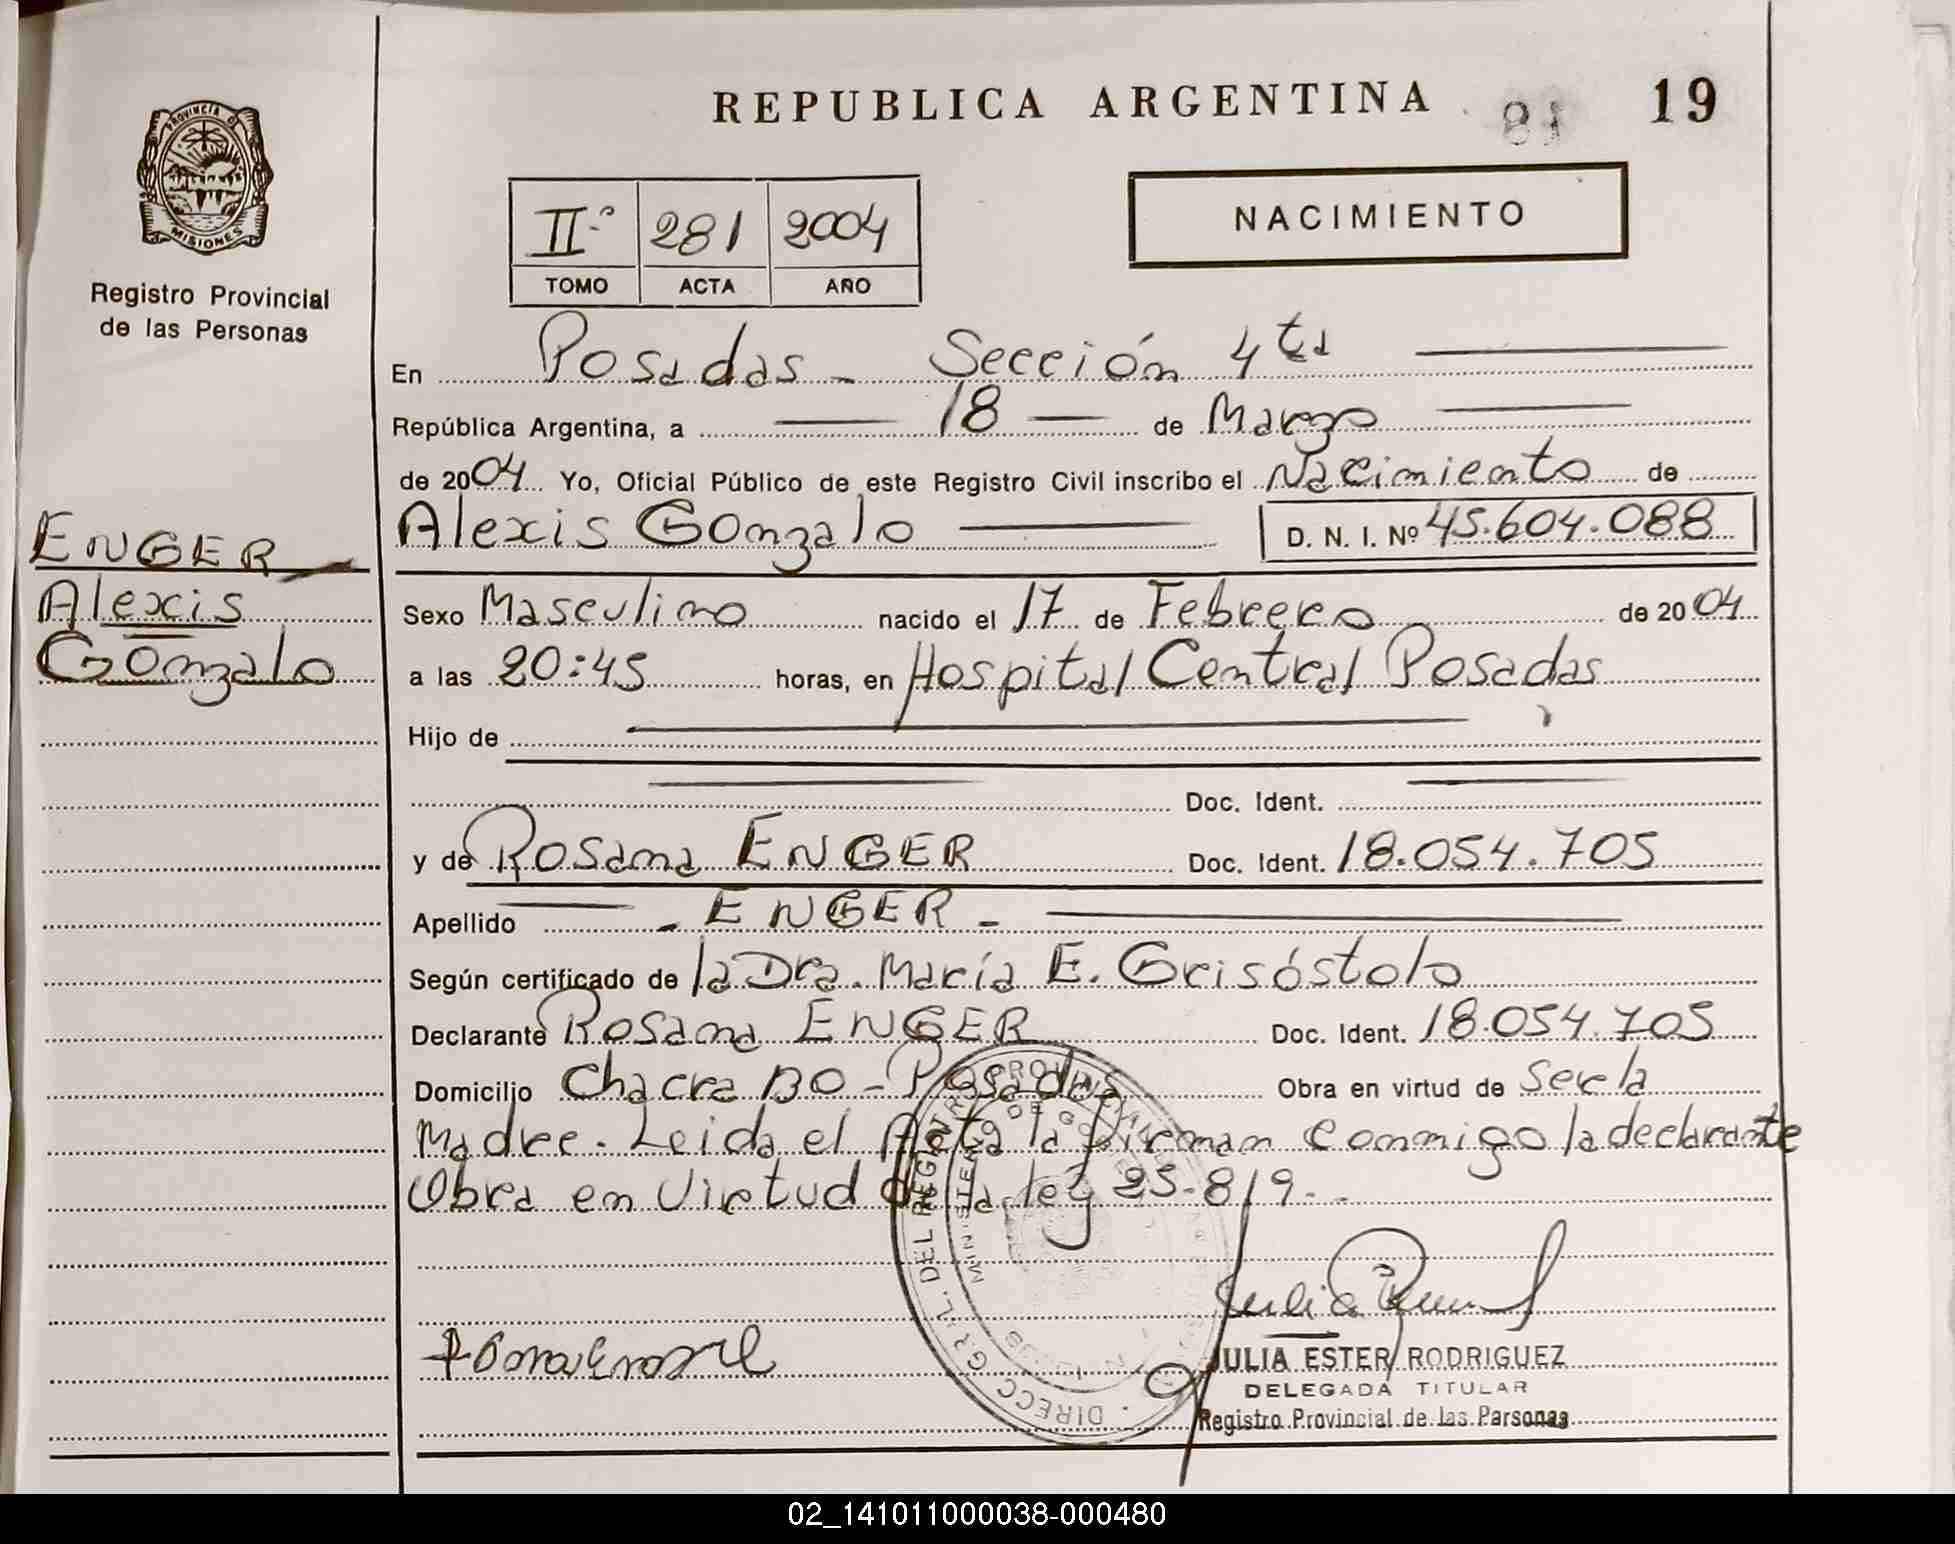 REPUBLICA ARGENTINA 81 19
PROVINCIA D
MISIONES
Registro Provincial
de las Personas
NACIMIENTO
IIº 281 2004
TOMO ACTA AÑO
En Posadas - Sección 4ta
República Argentina, a 18 de Marzo
de 2004 Yo, Oficial Público de este Registro Civil inscribo el Nacimiento de
Alexis Gonzalo D. N. I. Nº 45.604.088
ENGER
Alexis
Gonzalo
Sexo Masculino nacido el 17 de Febrero de 2004
a las 20:45 horas, en Hospital Central Posadas
Hijo de
Doc. Ident.
y de Rosana ENGER Doc. Ident. 18.054.705
Apellido - ENGER -
Según certificado de la Dra. María E. Grisóstolo
Declarante Rosana ENGER Doc. Ident. 18.054.705
Domicilio Chacra 130 - Posadas Obra en virtud de Ser la
Madre. Leida el Acta la firman conmigo la declarante
Obra en Virtud de la ley 25.819.
DIRECC. GRAL. DEL REGISTRO PROVINCIAL
MINISTERIO DE GO
JULIA ESTER RODRIGUEZ
DELEGADA TITULAR
Registro Provincial de las Parsonas
02_141011000038-000480